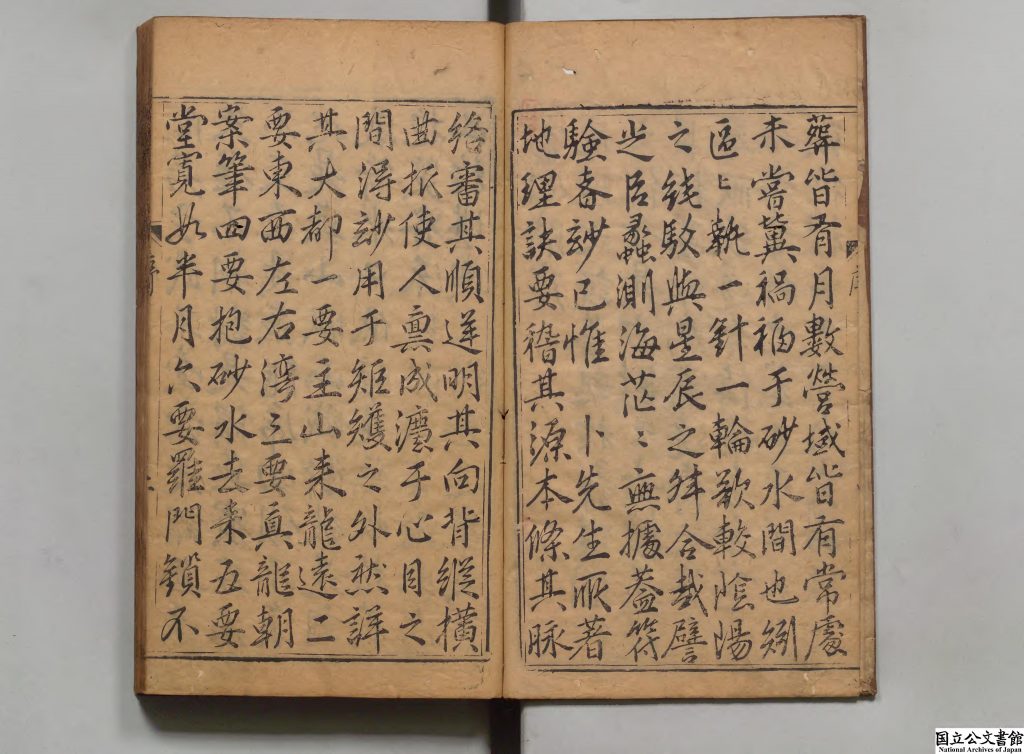 葬皆有月數營域皆有常處
未嘗冀禍福于砂水間也矧
區〻執一針一輪欲較陰陽
之綫馭與星辰之舛合哉譬
之居蠡測海茫〻無據葢符
驗春玅已惟 卜先生所著
地理訣要稽其源本條其脉
絡審其順逆明其向背縱橫
曲折使人禀成灋于心目之
間淂玅用于矩矱之外然詳
其大都一要主山来龍遠二
要東西左右湾三要真龍朝
案筆四要抱砂水去来五要
堂寬如半月六要羅門鎖不
序
国立公文書館
National Archives of Japan